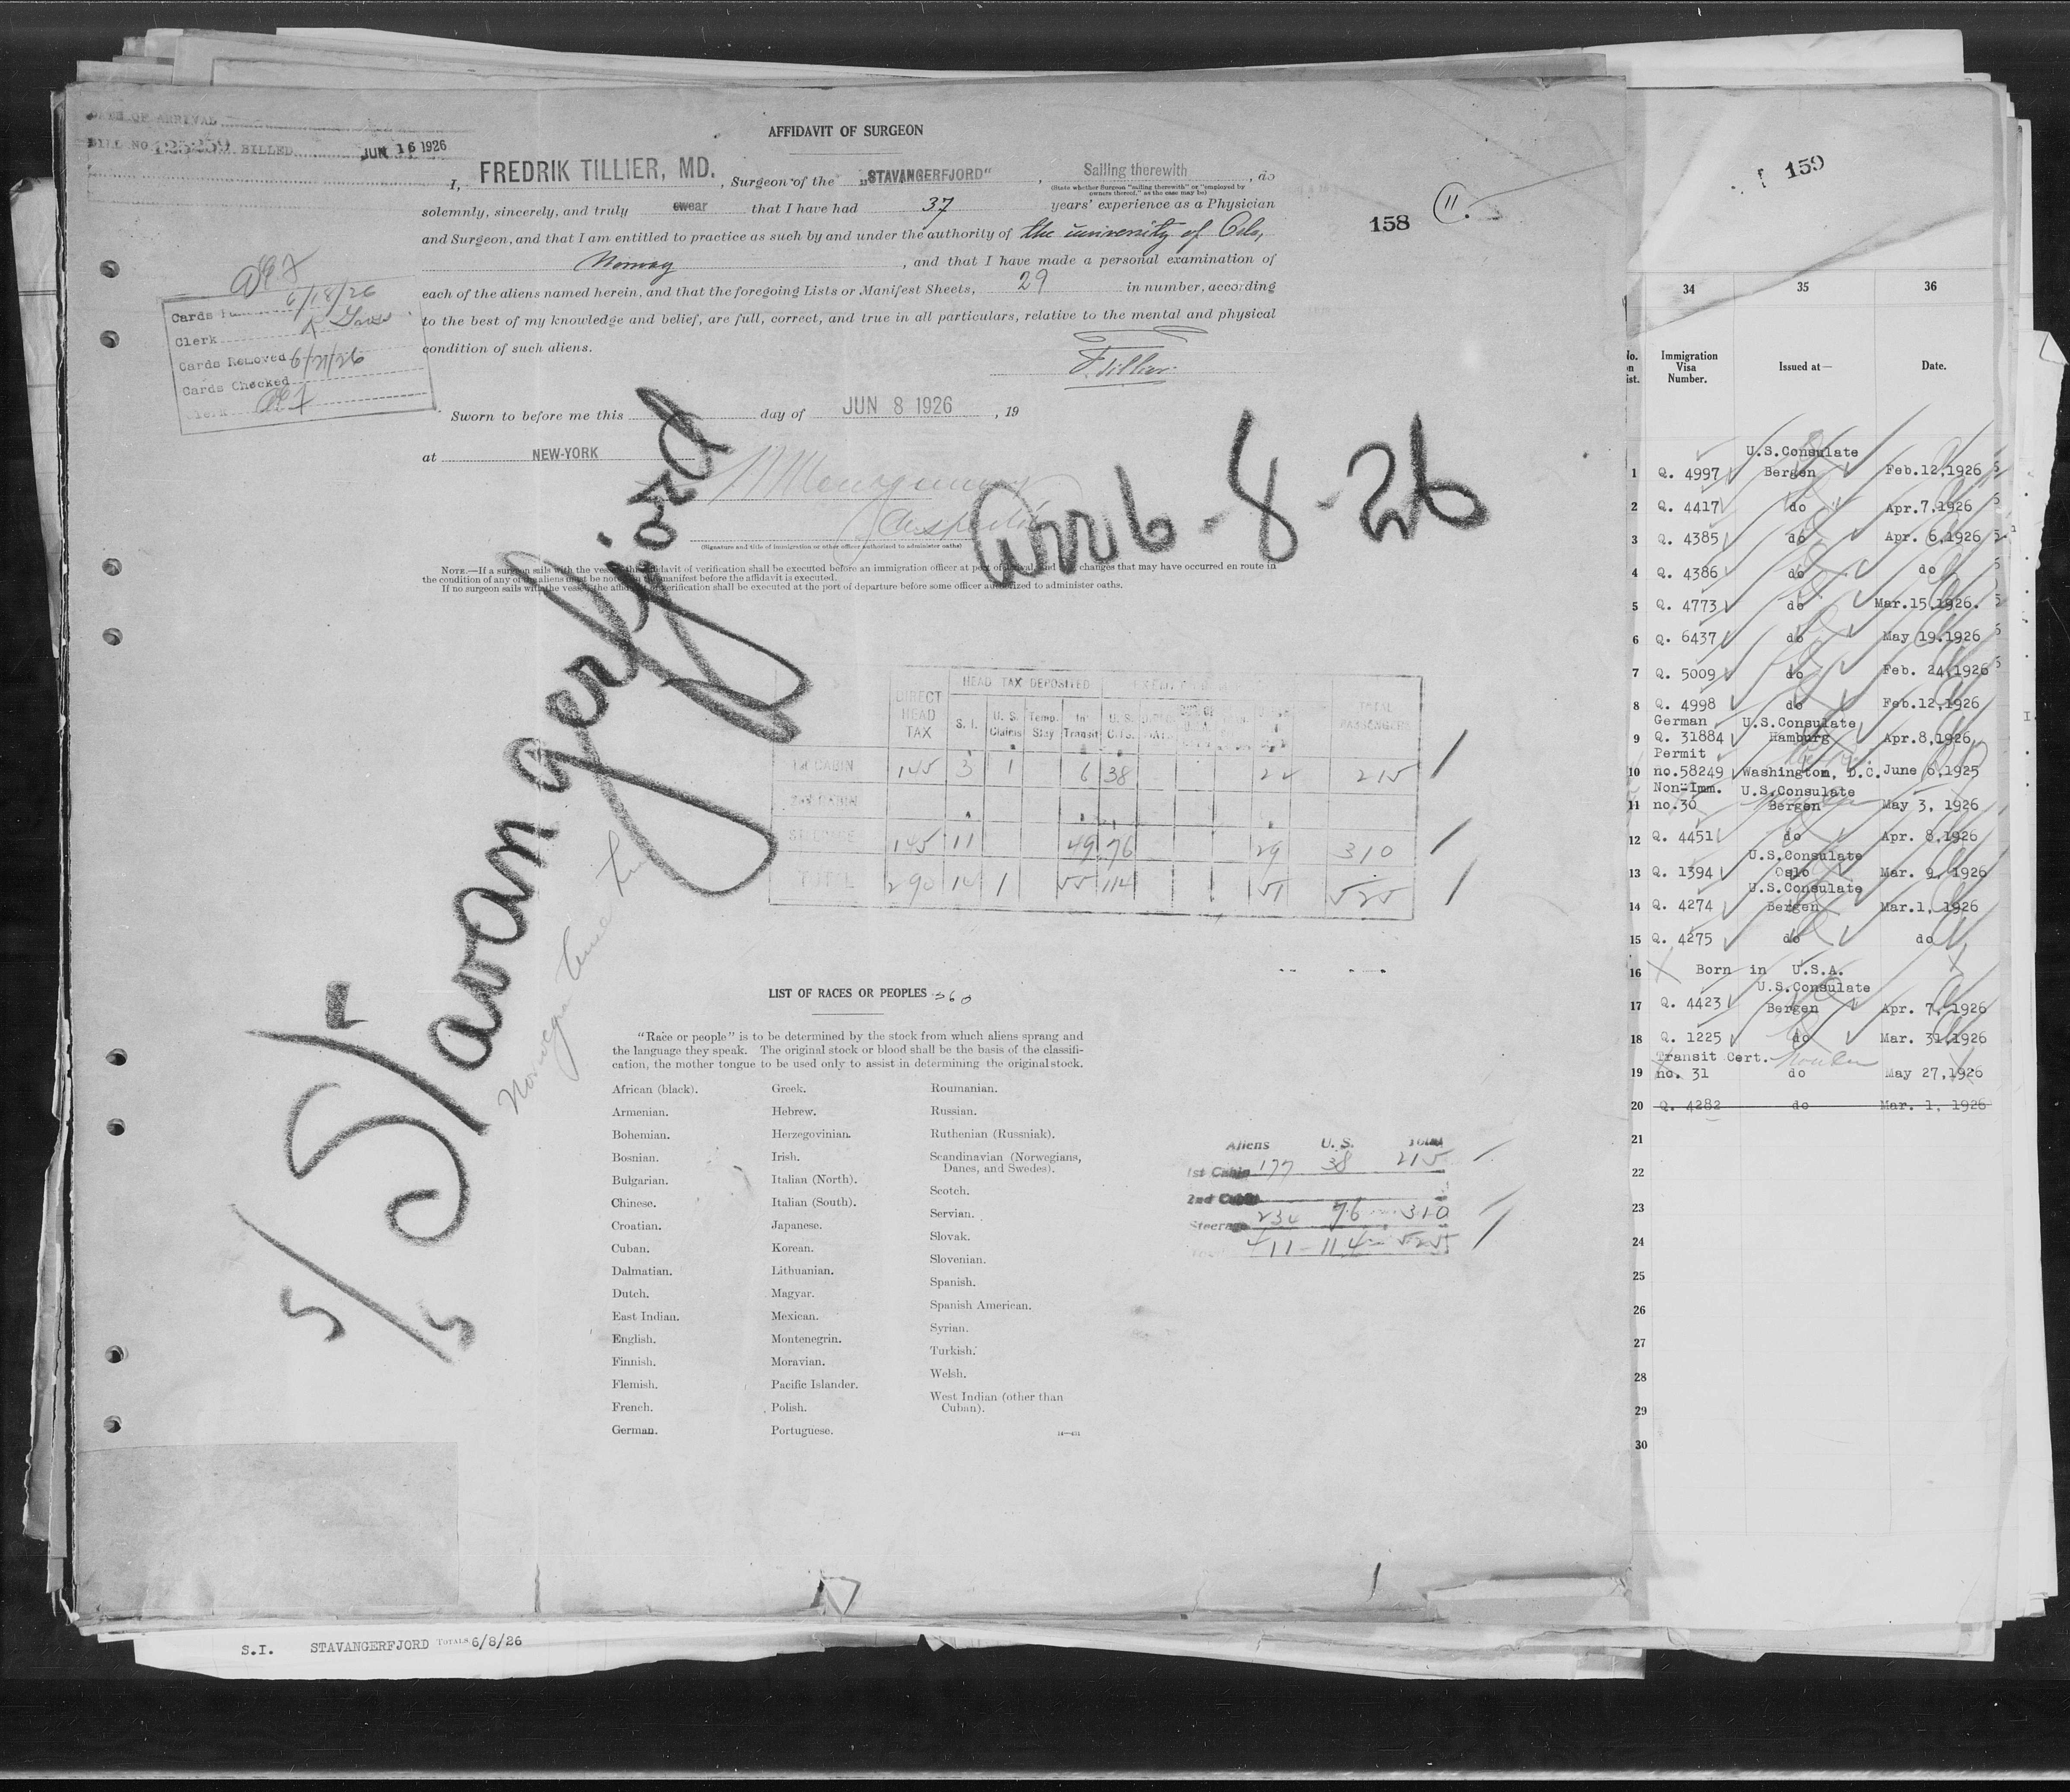 DATE OF ARRIVAL
BILL NO. 125259 BILLED JUN 16 1926
AFFIDAVIT OF SURGEON
I, FREDRIK TILLIER, MD. , Surgeon of the „STAVANGERFJORD" , Sailing therewith , do
(State whether Surgeon "sailing therewith" or "employed by
owners thereof," as the case may be)
solemnly, sincerely, and truly swear that I have had 37 years' experience as a Physician
and Surgeon, and that I am entitled to practice as such by and under the authority of the university of Oslo,
Norway , and that I have made a personal examination of
each of the aliens named herein, and that the foregoing Lists or Manifest Sheets, 29 in number, according
to the best of my knowledge and belief, are full, correct, and true in all particulars, relative to the mental and physical
condition of such aliens.
F. Tillier
158
11.
Cards 6/18/26
Clerk
Cards Removed 6/21/26
Cards Checked
Clerk
Sworn to before me this day of JUN 8 1926 , 19
at NEW-YORK
Inspector
(Signature and title of immigration or other officer authorized to administer oaths)
NOTE.—If a surgeon sails with the vessel, this affidavit of verification shall be executed before an immigration officer at port of arrival, and any changes that may have occurred en route in
the condition of any of the aliens must be noted on the manifest before the affidavit is executed.
If no surgeon sails with the vessel the affidavit of verification shall be executed at the port of departure before some officer authorized to administer oaths.
Arr 6-8-26
S/S Stavangerfjord
Norwegn Amer Line
DIRECT HEAD TAX HEAD TAX DEPOSITED TOTAL PASSENGERS
S. I. U. S. Claims Temp. Stay In Transit U. S. Cits.
1st CABIN 145 3 1 6 38 22 215
2nd CABIN
STEERAGE 145 11 49 76 29 310
TOTAL 290 14 1 55 114 51 525
LIST OF RACES OR PEOPLES 360
"Race or people" is to be determined by the stock from which aliens sprang and
the language they speak. The original stock or blood shall be the basis of the classifi-
cation, the mother tongue to be used only to assist in determining the original stock.
African (black).
Armenian.
Bohemian.
Bosnian.
Bulgarian.
Chinese.
Croatian.
Cuban.
Dalmatian.
Dutch.
East Indian.
English.
Finnish.
Flemish.
French.
German.
Greek.
Hebrew.
Herzegovinian.
Irish.
Italian (North).
Italian (South).
Japanese.
Korean.
Lithuanian.
Magyar.
Mexican.
Montenegrin.
Moravian.
Pacific Islander.
Polish.
Portuguese.
Roumanian.
Russian.
Ruthenian (Russniak).
Scandinavian (Norwegians,
Danes, and Swedes).
Scotch.
Servian.
Slovak.
Slovenian.
Spanish.
Spanish American.
Syrian.
Turkish.
Welsh.
West Indian (other than
Cuban).
Aliens U. S. Total
1st Cabin 177 38 215
2nd Cabin
Steerage 234 76 310
411 - 114 = 525
S.I. STAVANGERFJORD TOTALS 6/8/26
159
34 35 36
No. on list. Immigration Visa Number. Issued at— Date.
U.S.Consulate
1 Q. 4997 Bergen Feb.12,1926
2 Q. 4417 do Apr.7,1926
3 Q. 4385 do Apr. 6,1926
4 Q. 4386 do do
5 Q. 4773 do Mar.15,1926.
6 Q. 6437 do May 19.1926
7 Q. 5009 do Feb. 24,1926
8 Q. 4998 do Feb.12,1926
German U.S.Consulate
9 Q. 31884 Hamburg Apr.8,1926
Permit
10 no.58249 Washington, D.C. June 6,1925
Non-Imm. U.S.Consulate
11 no.30 Bergen May 3, 1926
12 Q. 4451 do Apr. 8,1926
U.S.Consulate
13 Q. 1394 Oslo Mar. 9, 1926
U.S.Consulate
14 Q. 4274 Bergen Mar.1, 1926
15 Q. 4275 do do
16 Born in U.S.A.
U.S.Consulate
17 Q. 4423 Bergen Apr. 7, 1926
18 Q. 1225 do Mar. 31,1926
Transit Cert.
19 no. 31 do May 27,1926
20 Q. 4282 do Mar. 1, 1926
21
22
23
24
25
26
27
28
29
30